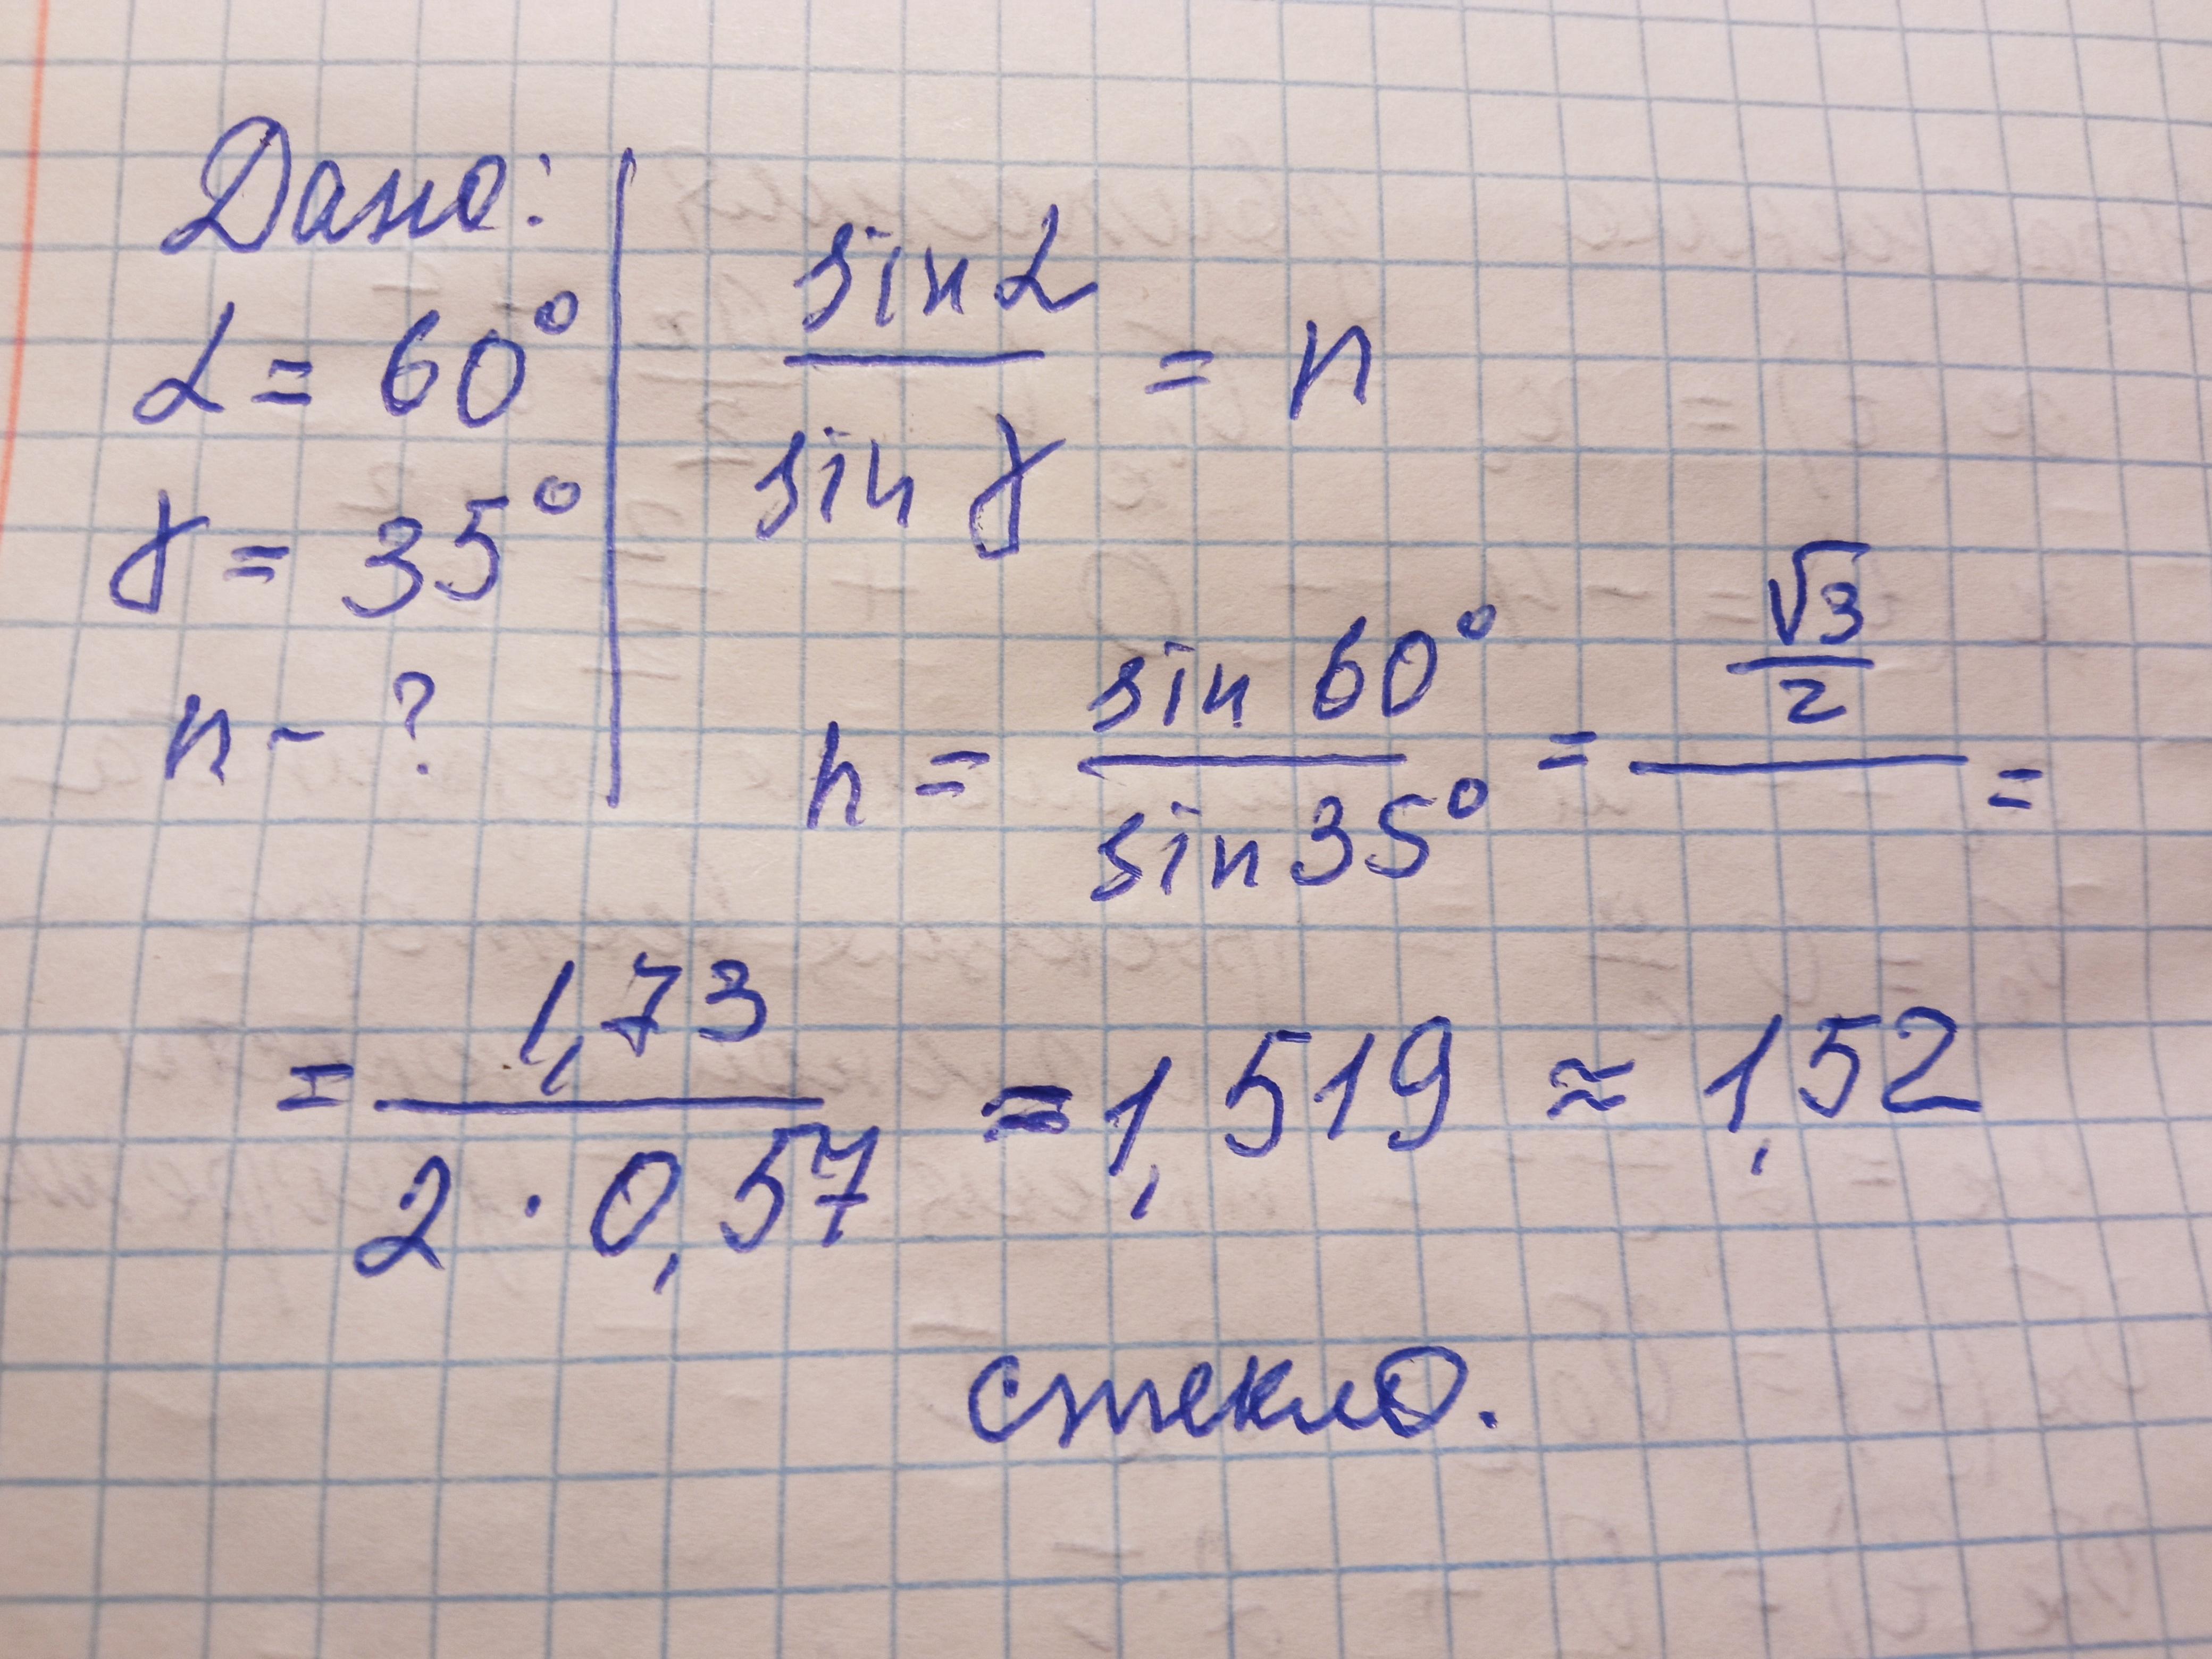 Дано:
α = 60°
γ = 35°
n - ?
sin α / sin γ = n
n = sin 60° / sin 35° = √3/2 / =
= 1,73 / 2 · 0,57 = 1,519 ≈ 1,52
стекло.